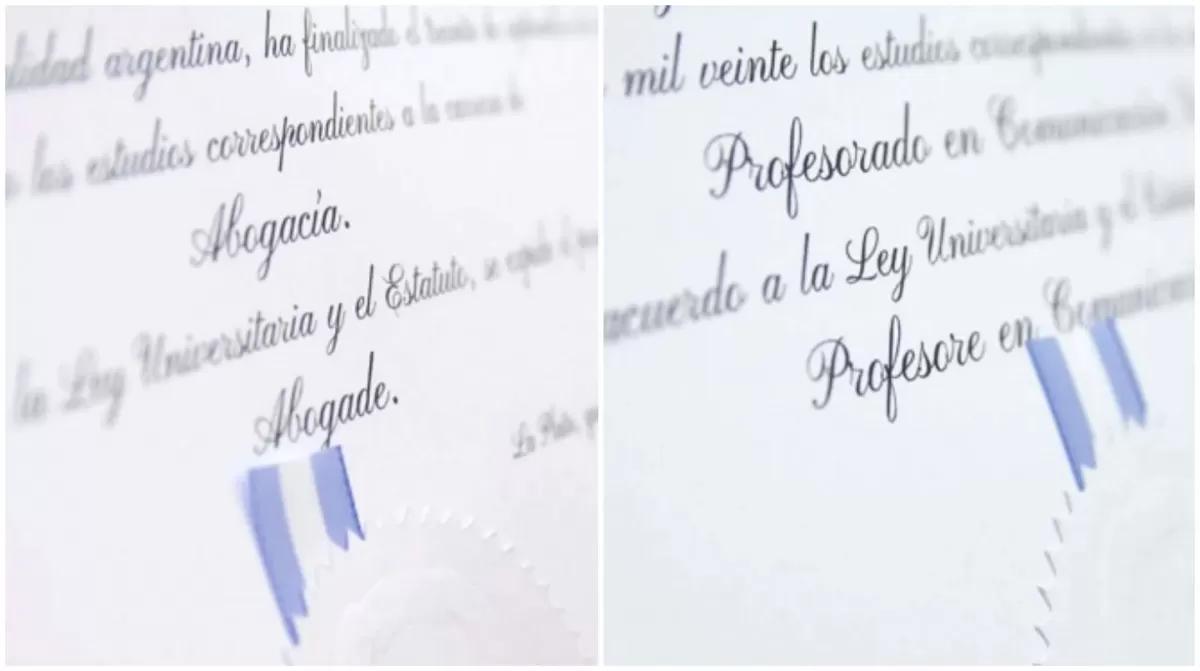 argentina, ha finalizado el
los estudios correspondientes a la carrera de
Abogacía.
la Ley Universitaria y el Estatuto, se expide el
Abogade.
La Plata,
mil veinte los estudios correspondientes
Profesorado en Comunicación
acuerdo a la Ley Universitaria y el
Profesore en